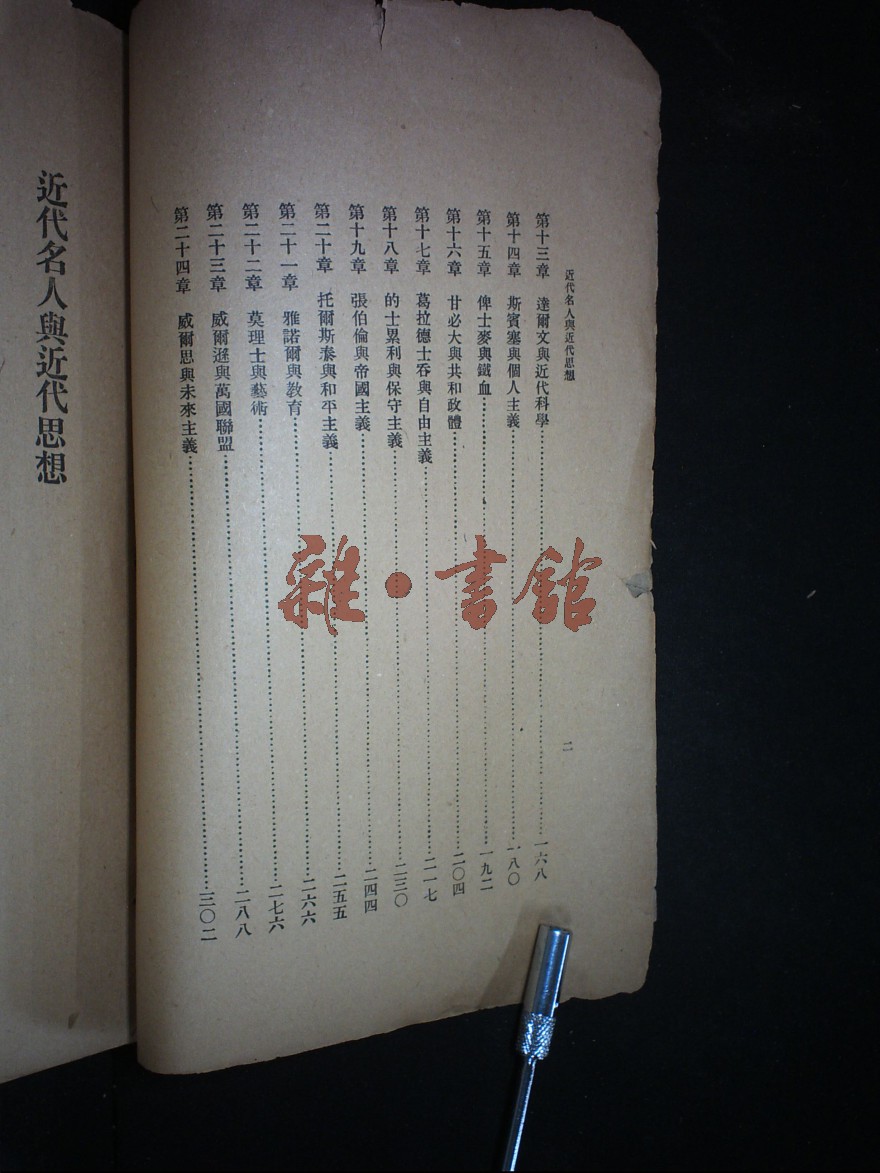 近代名人與近代思想
二
第十三章　達爾文與近代科學…一六八
第十四章　斯賓塞與個人主義…一八〇
第十五章　俾士麥與鐵血…一九二
第十六章　甘必大與共和政體…二〇四
第十七章　葛拉德士吞與自由主義…二一七
第十八章　的士累利與保守主義…二三〇
第十九章　張伯倫與帝國主義…二四四
第二十章　托爾斯泰與和平主義…二五五
第二十一章　雅諾爾與教育…二六六
第二十二章　莫理士與藝術…二七六
第二十三章　威爾遜與萬國聯盟…二八八
第二十四章　威爾思與未來主義…三〇二
近代名人與近代思想
雜·書館